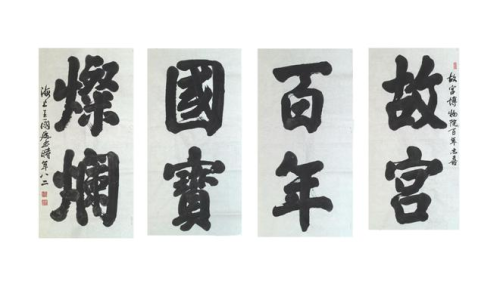 故宫
百年
國寶
燦爛
故宫博物院百年志喜